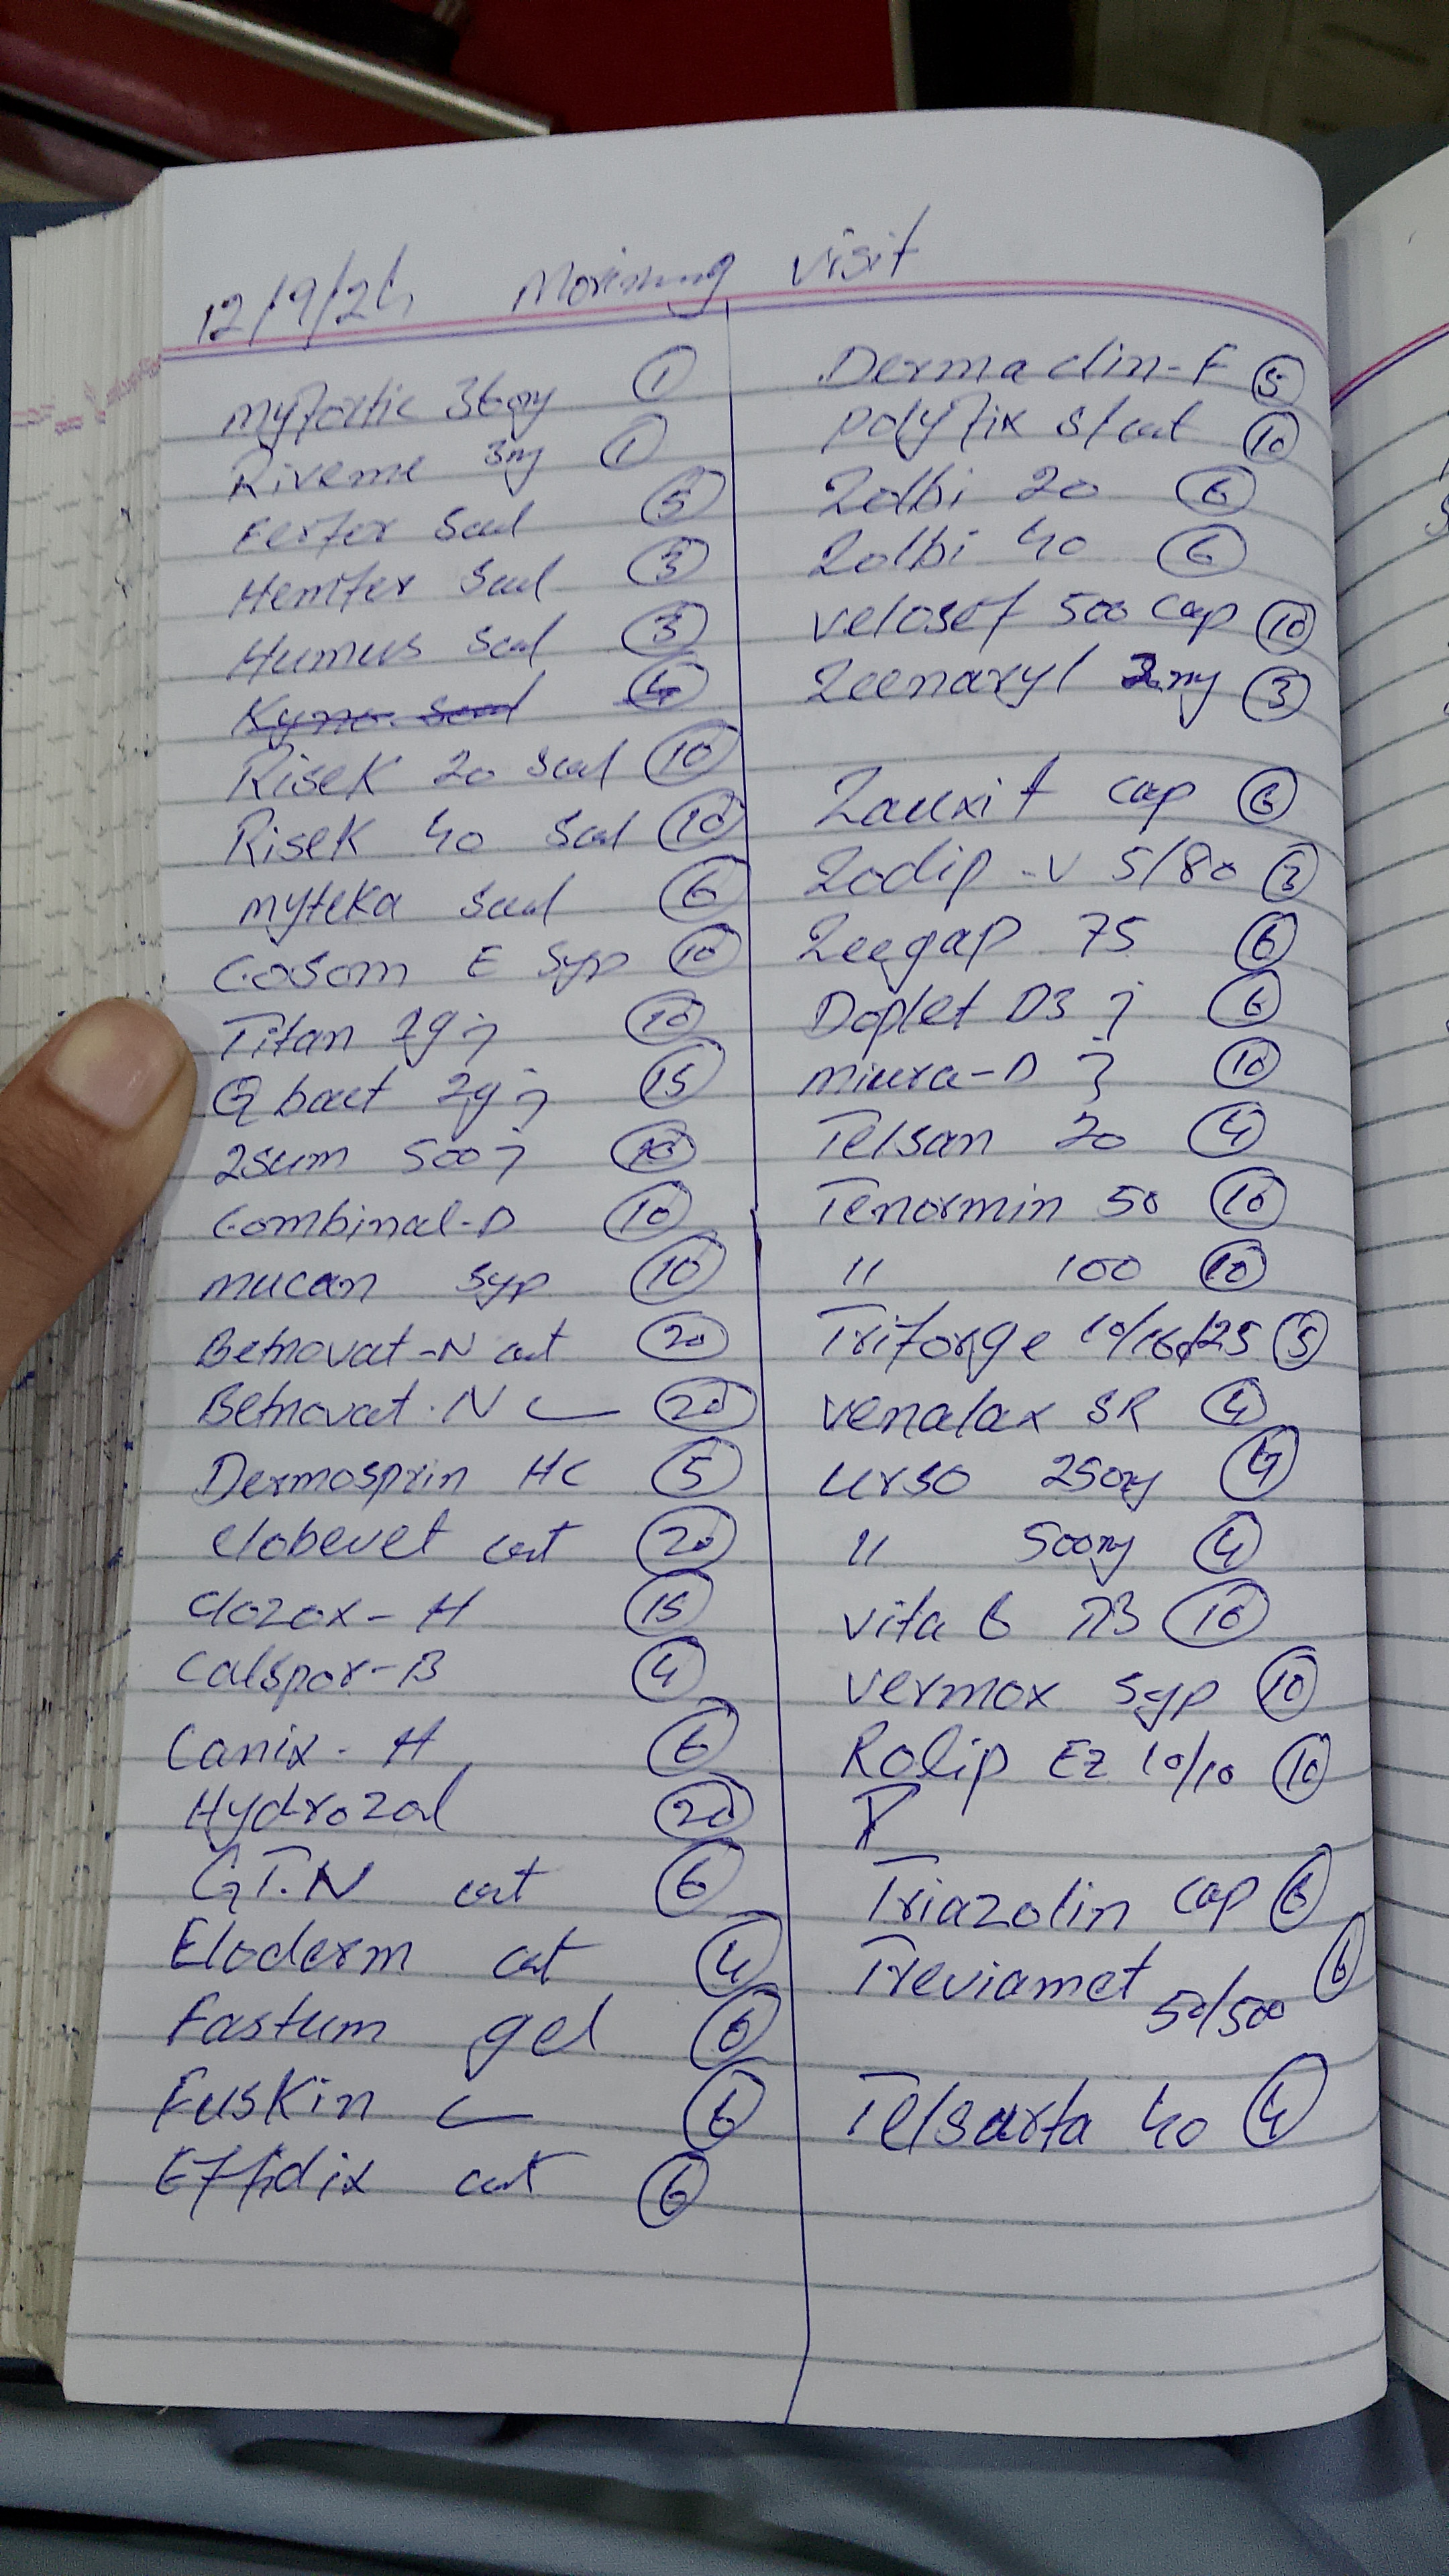 12/9/24 Morning visit
Myfortic 360mg 1
Riveme 3mg 1
Ferfer Sach 5
Hemfer Sach 3
Humus Sach 3
Risek 20 Sach 10
Risek 40 Sach 10
myteka Sach 6
Cosom E Syp 10
Titan 2g j 10
Q bact 2g j 15
2sum 500 j 10
Combinal-D 10
mucan syp 10
Betnovat-N oint 20
Betnovat-N C 20
Dermosprin HC 5
Clobevet oint 20
Clozox-H 15
Calspor-B 4
Canix-H 6
Hydrozol 20
G.T.N oint 6
Eloderm oint 4
Fastum gel 6
Fuskin C 6
Effidix oint 6
Dermaclin-F 5
polyfix s/oint 10
Zolbi 20 6
Zolbi 40 6
velosef 500 cap 10
Zeenaryl 2mg 3
Zauxit cap 6
Zodip-V 5/80 3
Zeegap 75 6
Doplet D3 j 6
miura-D j 10
Telsan 20 4
Tenormin 50 10
" 100 10
Triforge 10/160/25 5
venalax SR 4
urso 250mg 4
" 500mg 4
vita 6 10
vermox syp 10
Rolip EZ 10/10 10
Triazolin cap 6
Treviamet 50/500 6
Telsarta 40 4